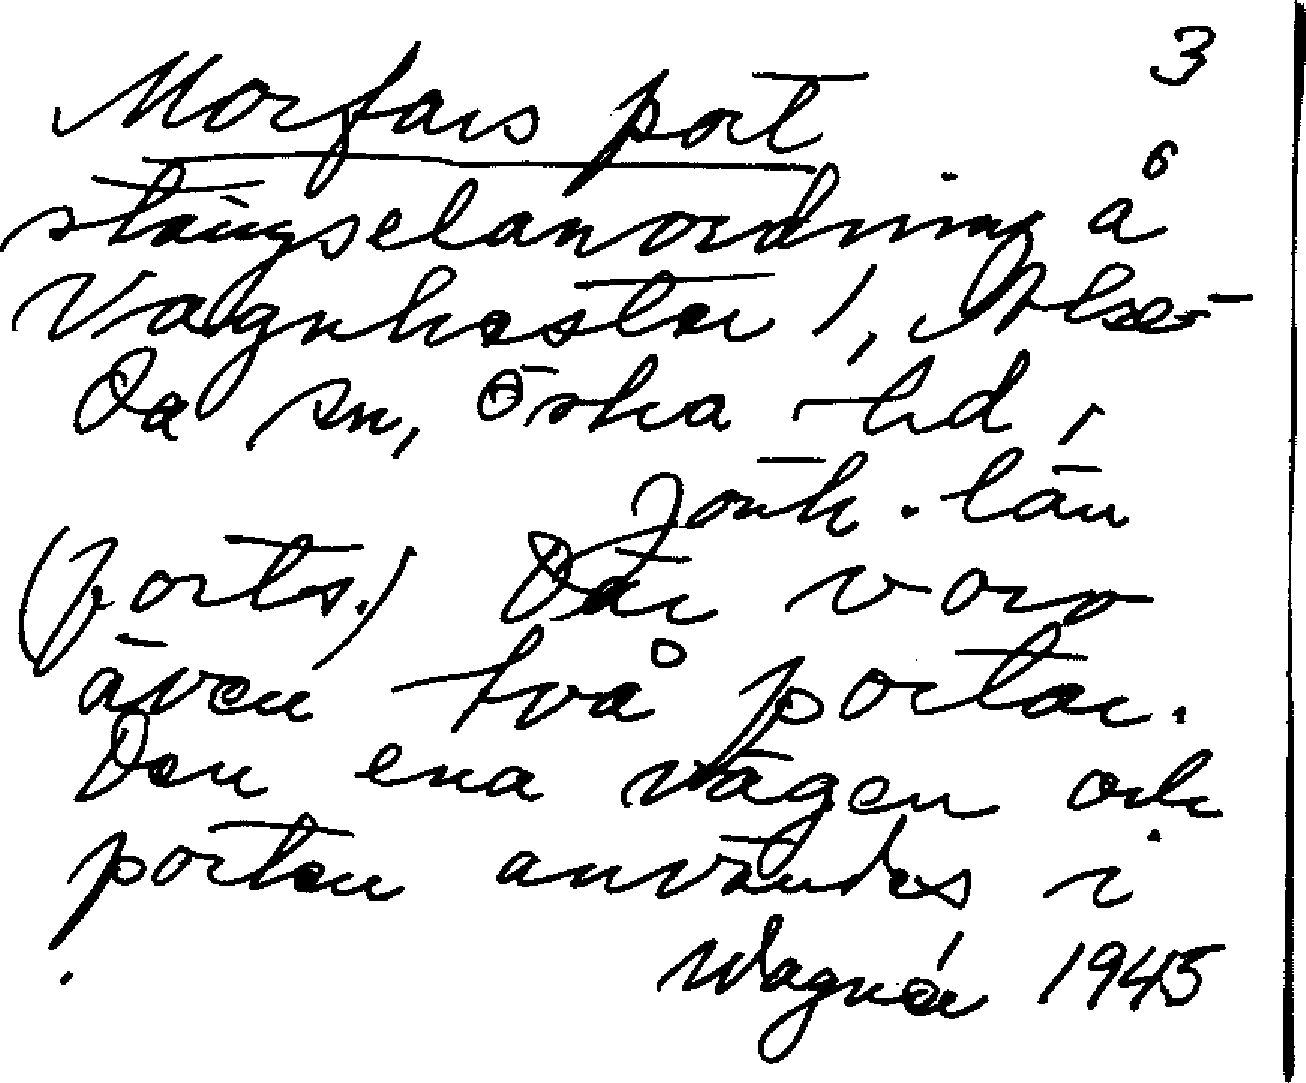 3
Morfars port
stängselanordning å
Vagnhester 1, Alse-
da sn, Östra hd,
Jönk. län
(forts.) Där voro
även två portar.
Den ena vägen och
porten användes i
Wagnér 1945